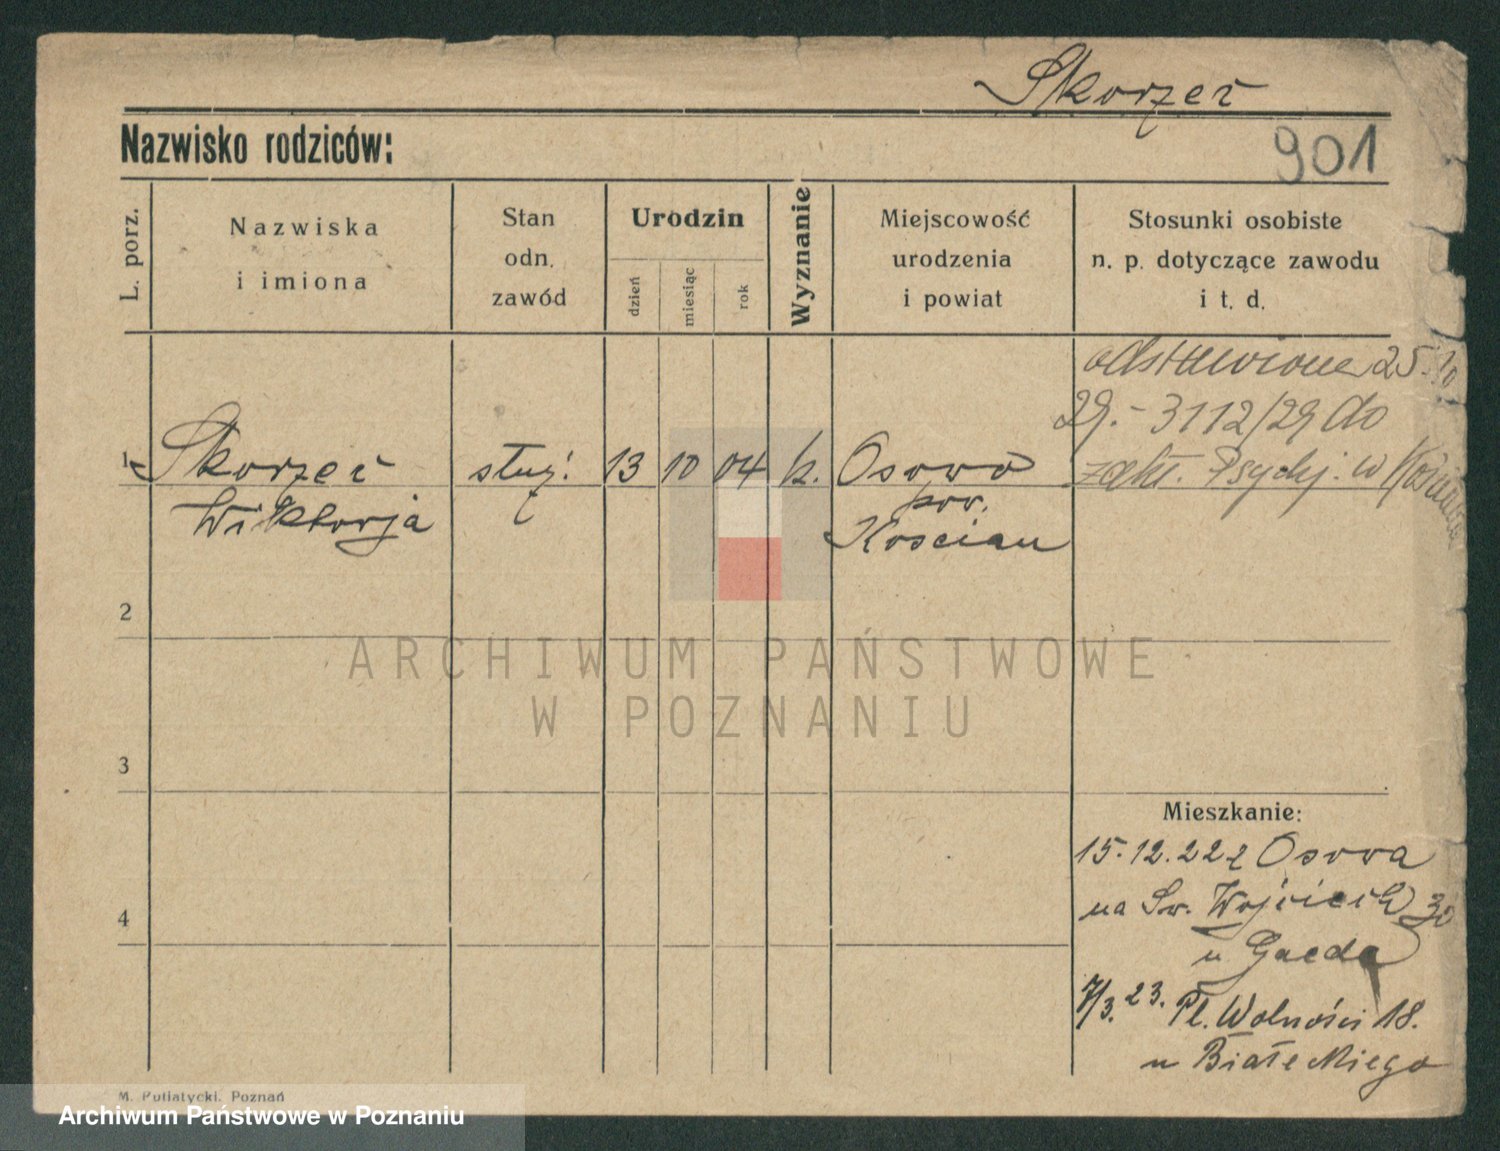 Skorzec
Nazwisko rodziców:
901
L. porz.
Nazwiska
i imiona
Stan
odn.
zawód
Urodzin
dzień
miesiąc
rok
Wyznanie
Miejscowość
urodzenia
i powiat
Stosunki osobiste
n. p. dotyczące zawodu
i t. d.
odstawiona 25.10
29. - 3112/29 do
zakł. Psychj. w Kościanie
1 Skorzec służ. 13 10 04 k. Osowo
Wiktorja
pow.
Koscian
2
3
4
Mieszkanie:
15.12.22 z Osowa
na Św. Wojciech 30
u Gaede
7/3. 23. Pl. Wolności 18.
u Białeckiego
M. Putiatycki. Poznań
ARCHIWUM PAŃSTWOWE
W POZNANIU
Archiwum Państwowe w Poznaniu